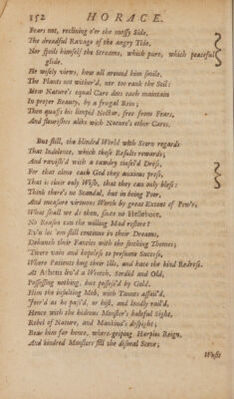 152 HORACE.
Fears not, reclining o'er the mossy Side,
The dreadful Ravage of the angry Tide,
Nor spoils himself the Streams, which pure, which peaceful
glide.
He wisely views, how all around him smile,
The Plants not wither'd, nor too rank the Soil:
How Nature's equal Care does each maintain
In proper Beauty, by a frugal Rein;
Then quaffs his limpid Nectar, free from Fears,
And flourishes alike with Nature's other Cares.
But still, the blinded World with Scorn regards
That Indolence, which these Results rewards;
And ravish'd with a tawdry tinsel'd Dress,
For that alone each God they anxious press,
That is their only Wish, that they can only bless:
Think there's no Scandal, but in being Poor,
And measure virtuous Worth by great Extent of Pow'r.
What shall we do then, since no Hellebore,
No Reason can the willing Mad restore?
Ev'n let 'em still continue in their Dreams,
Debauch their Fancies with the soothing Themes;
There vain and hopeless to presume Success,
Where Patients hug their Ills, and hate the kind Redress.
At Athens liv'd a Wretch, Sordid and Old,
Possessing nothing, but possess'd by Gold.
Him the insulting Mob, with Taunts assail'd,
as he pass'd, or hist, and loudly rail'd,
Hence with the hideous Monster's baleful Sight,
Rebel of Nature, and Mankind's despight;
Bear him far hence, where-griping Harpies Reign,
And kindred Monsters fill the dismal Scene;